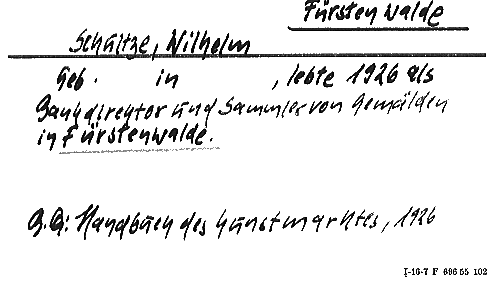 Fürstenwalde
Schultze, Wilhelm
Geb. in , lebte 1926 als
Bankdirektor und Sammler von Gemälden
in Fürstenwalde.
B.Q: Handbuch des Kunstmarktes, 1926
I-16-7 F 696 55 102